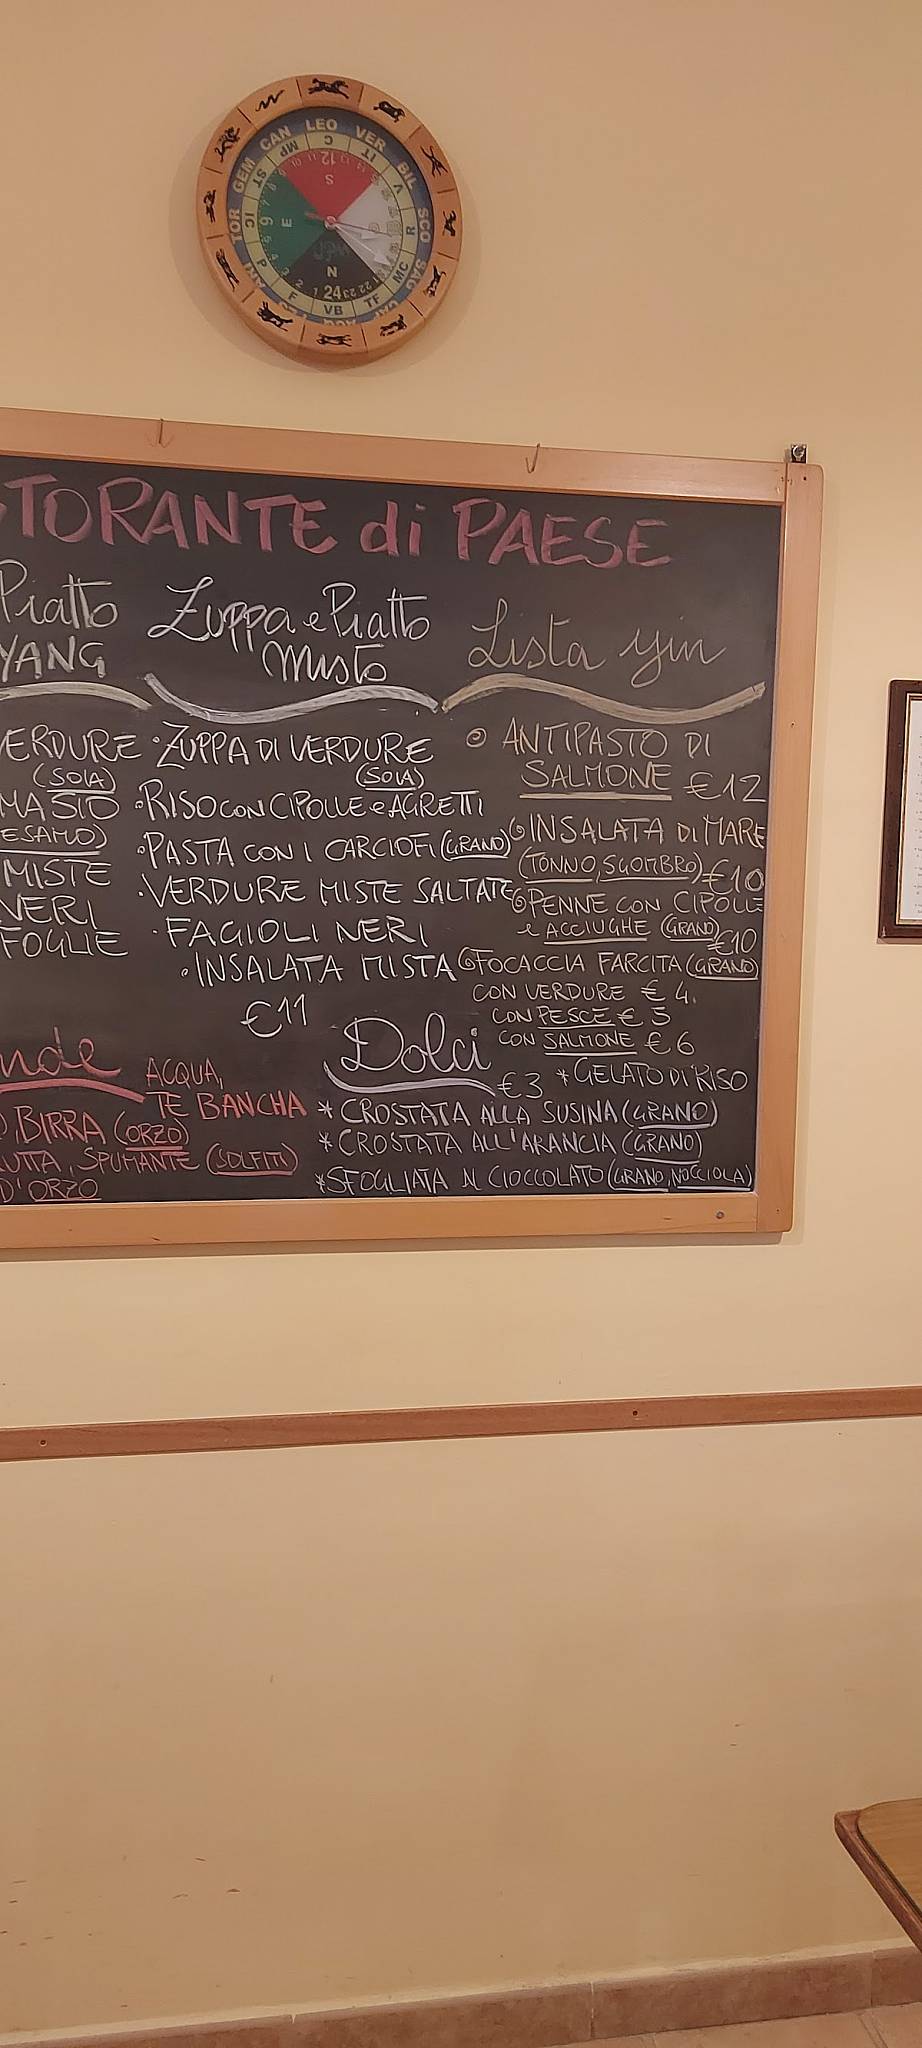 LEO
VER
BIL
SCO
SAG
TOR
GEM
CAN
C
IT
V
R
MC
TF
VB
F
P
IC
ST
MP
S
E
N
12
24
TORANTE di PAESE
Piatto
YANG
VERDURE
(SOIA)
MASIO
ESAMO)
MISTE
NERI
FOGLIE
Zuppa e Piatto
Misto
• ZUPPA DI VERDURE
(SOIA)
• RISO CON CIPOLLE e AGRETTI
• PASTA CON I CARCIOFI (GRANO)
• VERDURE MISTE SALTATE
• FAGIOLI NERI
• INSALATA MISTA
€11
Lista yin
ANTIPASTO DI
SALMONE €12
INSALATA DI MARE
(TONNO, SGOMBRO) €10
PENNE CON CIPOLLE
e ACCIUGHE (GRANO) €10
FOCACCIA FARCITA (GRANO)
CON VERDURE € 4.
CON PESCE € 5
CON SALMONE € 6
nde
ACQUA,
TE BANCHA
, BIRRA (ORZO)
UTTA, SPUMANTE (SOLFITI)
D'ORZO
Dolci
€3 * GELATO DI RISO
* CROSTATA ALLA SUSINA (GRANO)
* CROSTATA ALL'ARANCIA (GRANO)
* SFOGLIATA AL CIOCCOLATO (GRANO, NOCCIOLA)